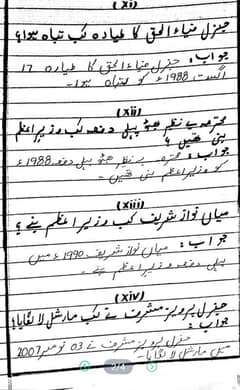 (xi)
جنرل ضیاء الحق کا طیارہ کب تباہ ہوا؟
جواب: جنرل ضیاء الحق کا طیارہ ١٦
اگست 1988ء کو تباہ ہوا۔
(xii)
محترمہ بے نظیر بھٹو پہلی دفعہ کب وزیراعظم
بنی تھیں؟
جواب: محترمہ بے نظیر بھٹو پہلی دفعہ 1988ء
کو وزیراعظم بنی تھیں۔
(xiii)
میاں نواز شریف کب وزیراعظم بنے؟
جواب: میاں نواز شریف 1990ء میں
پہلی دفعہ وزیراعظم بنے۔
(xiv)
جنرل پرویز مشرف نے کب مارشل لا لگایا؟
جواب: جنرل پرویز مشرف نے 03 نومبر 2007
میں مارشل لا لگایا۔